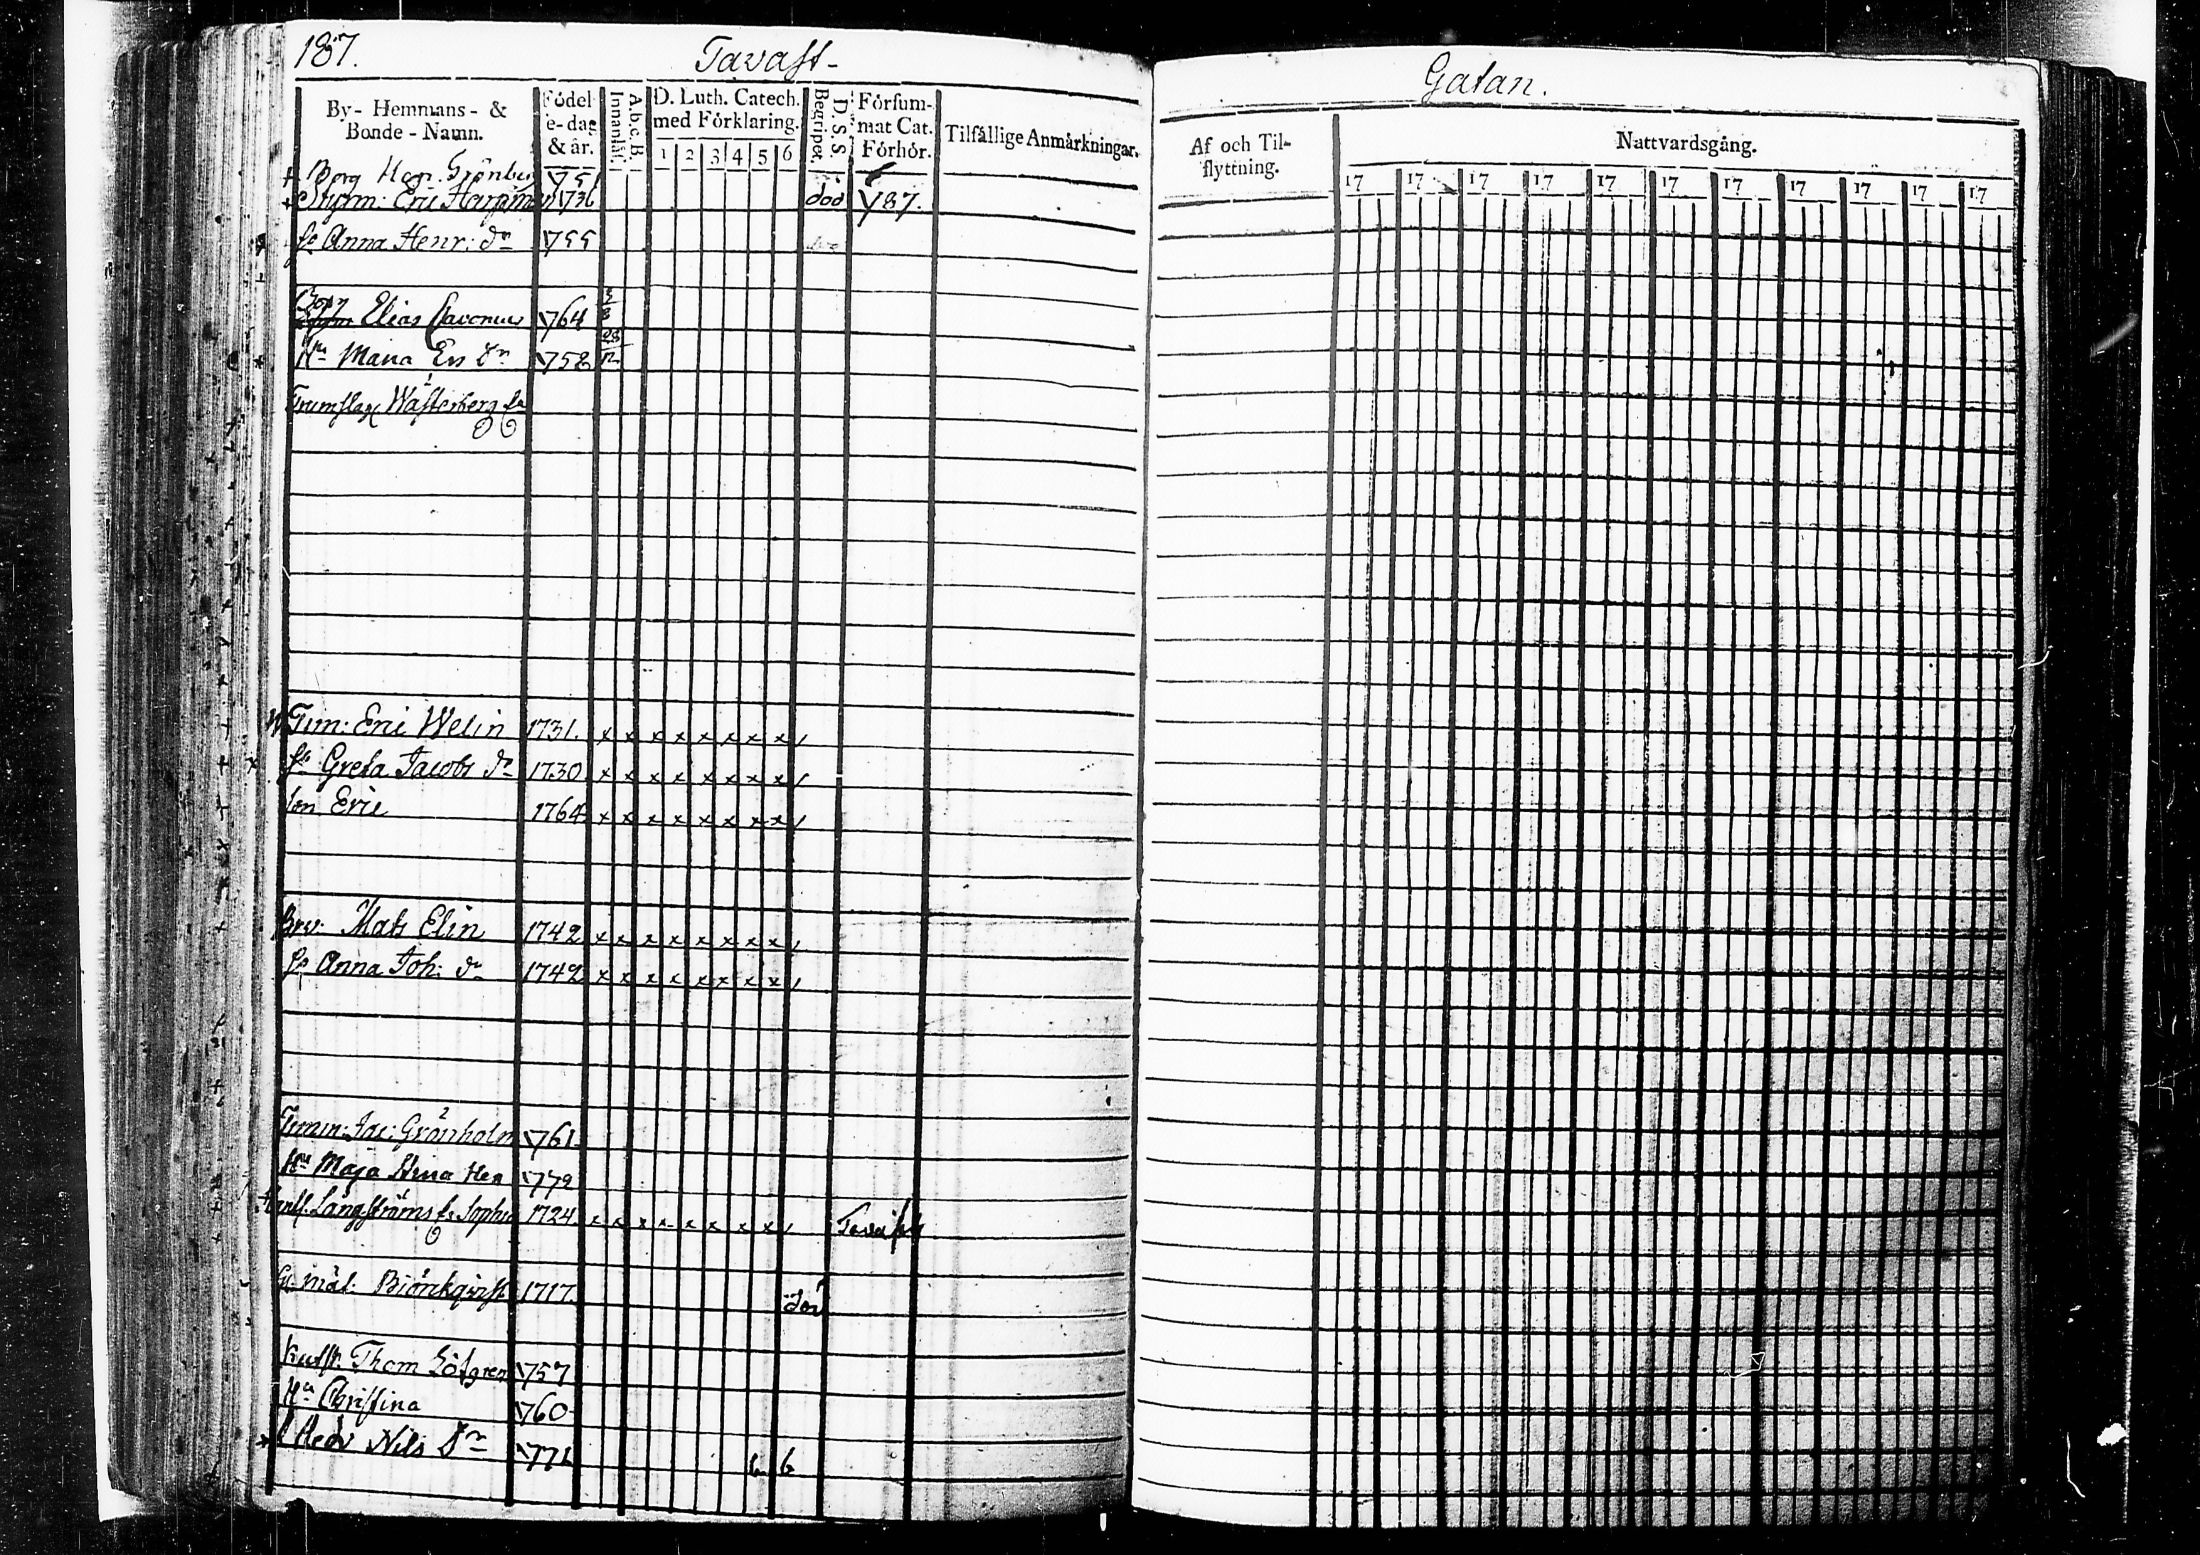 187. Tavast-
By- Hemmans- & Bonde-Namn.
Födel e-dag & år.
Innanläs.
A.b.c.B.
D. Luth. Catech. med Förklaring.
1 2 3 4 5 6
Begripet.
D. S. S.
Försum- mat Cat. Förhör.
Tilfällige Anmärkningar.
+ Borg Grönberg 1751
+ Eric 1736 död 1787.
Anna Henr: dr 1755
Elias 1764
Hu Maria Ers dr 1752
Wästerberg
Tim: Eric Welin 1731. x x x x x x x x
Greta Jacobs dr 1730 x x x x x x x x
son Eric 1764 x x x x x x x x
Mats Elin 1742 x x x x x x x x
Anna Joh: dr 1742 x x x x x x x x
Jac: Grönholm 1761
Hu Maja Stina Hen 1772
Långströms Sophia 1724 x x x x x x x x
mål: Björkqvist 1717.
Thom Löfgren 1757
Hu Christina 1760
Hedv Nils dr 1771
Gatan.
Af och Til- flyttning.
Nattvardsgång.
17 17 17 17 17 17 17 17 17 17 17